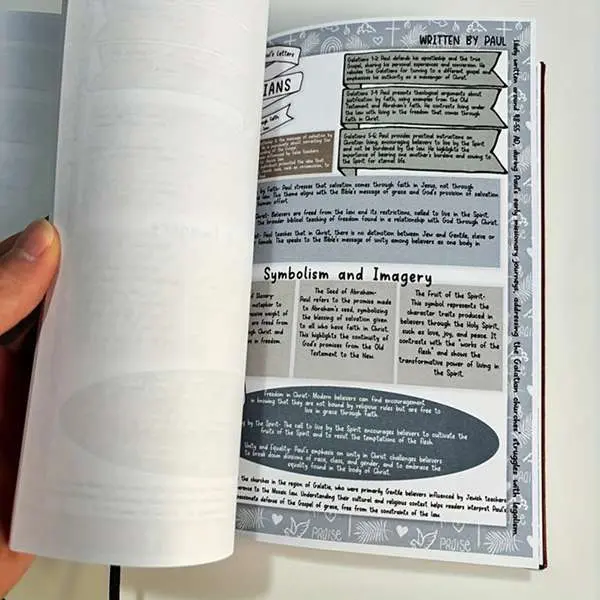 WRITTEN BY PAUL
Paul's Letters
IANS
Galatians 1-2: Paul defends his apostleship and the true
Gospel, sharing his personal experiences and conversion. He
rebukes the Galatians for turning to a different gospel and
emphasizes his authority as a messenger of Christ.
Galatians 3-4: Paul presents theological arguments about
justification by faith, using examples from the Old
Testament and Abraham's faith. He contrasts living under
the law with living in the freedom that comes through
faith in Christ.
Galatians 5-6: Paul provides practical instructions on
Christian living, encouraging believers to live by the Spirit
and not be burdened by the law. He highlights the
importance of bearing one another's burdens and sowing to
the Spirit for eternal life.
by Faith: Paul stresses that salvation comes through faith in Jesus, not through
This theme aligns with the Bible's message of grace and God's provision of salvation
effort.
Christ- Believers are freed from the law and its restrictions, called to live in the Spirit.
broader biblical teaching of freedom found in a relationship with God through Christ.
Paul teaches that in Christ, there is no distinction between Jew and Gentile, slave or
female. This speaks to the Bible's message of unity among believers as one body in
Symbolism and Imagery
Slavery-
metaphor to
weight of
are freed from
Christ and
in freedom.
The Seed of Abraham-
Paul refers to the promise made
to Abraham's seed, symbolizing
the blessing of salvation given
to all who have faith in Christ.
This highlights the continuity of
God's promises from the Old
Testament to the New.
The Fruit of the Spirit-
This symbol represents the
character traits produced in
believers through the Holy Spirit,
such as love, joy, and peace. It
contrasts with the "works of the
flesh" and shows the
transformative power of living in
the Spirit.
Freedom in Christ- Modern believers can find encouragement
in knowing that they are not bound by religious rules but are free to
live in grace through faith.
by the Spirit- The call to live by the Spirit encourages believers to cultivate the
fruits of the Spirit and to resist the temptations of the flesh.
Unity and Equality- Paul's emphasis on unity in Christ challenges believers
to break down divisions of race, class, and gender, and to embrace the
equality found in the body of Christ.
the churches in the region of Galatia, who were primarily Gentile believers influenced by Jewish teachers
to the Mosaic law. Understanding their cultural and religious context helps readers interpret Paul's
passionate defense of the Gospel of grace, free from the constraints of the law.
likely written around 48-55 AD, during Paul's early missionary journeys, addressing the Galatian churches' struggles with legalism.
PRAISE
PRAISE